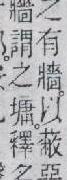 之有牆以蔽惡
牆謂之墉釋名